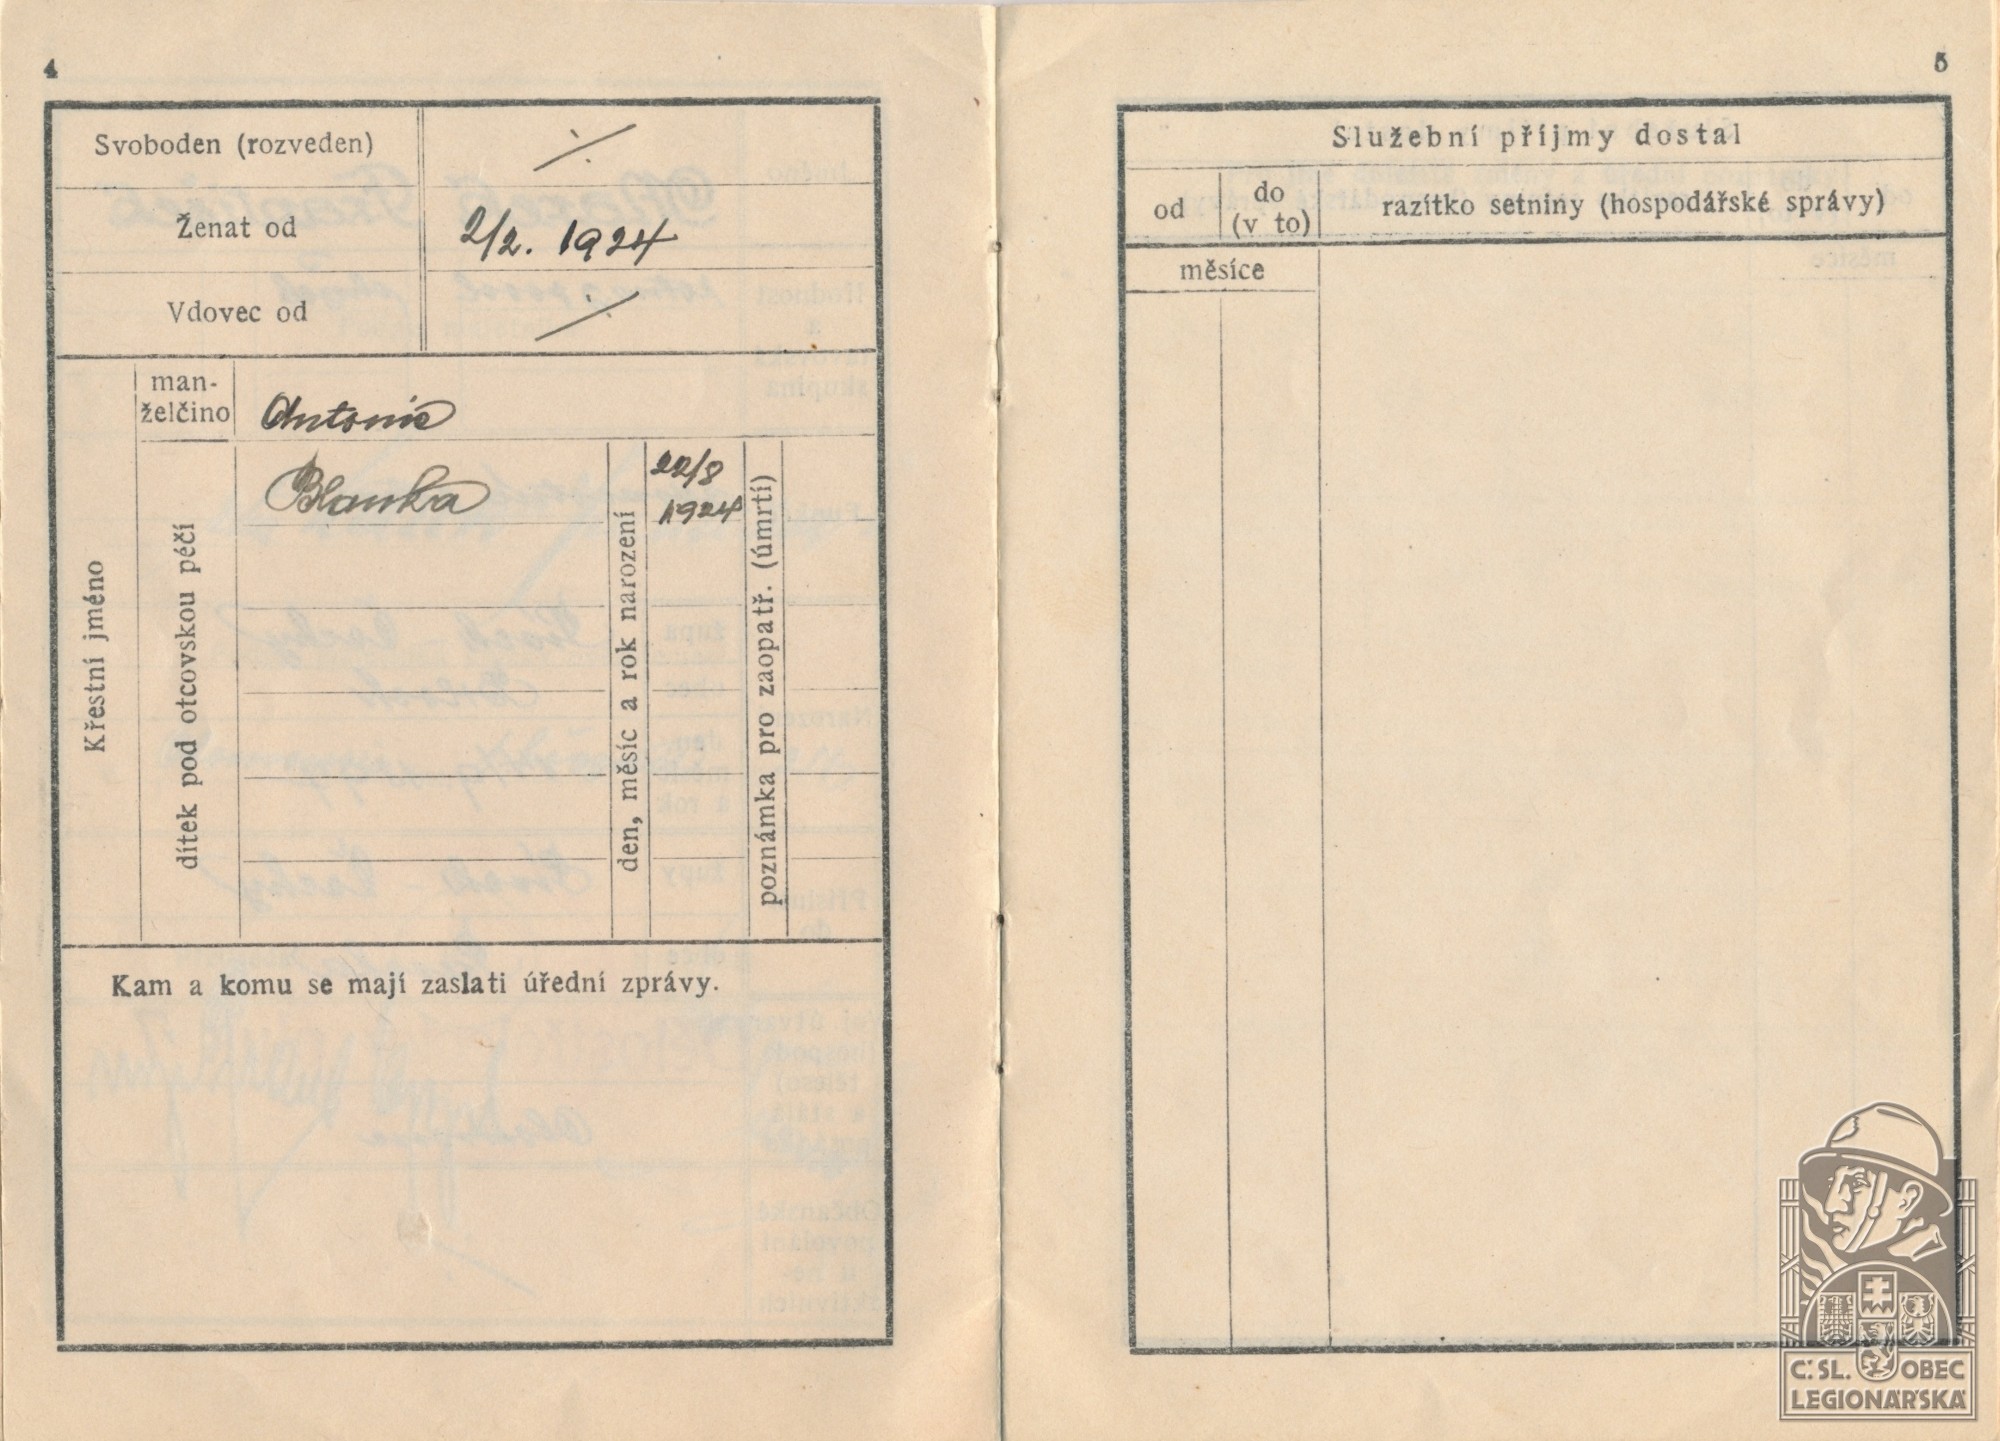 4
Svoboden (rozveden)
Ženat od
2/2. 1924
Vdovec od
Křestní jméno
man-
želčino
Antonie
dítek pod otcovskou péčí
Blanka
den, měsíc a rok narození
22/8
1924
poznámka pro zaopatř. (úmrtí)
Kam a komu se mají zaslati úřední zprávy.
5
Služební příjmy dostal
od
do
(v to)
razítko setniny (hospodářské správy)
měsíce
Č. SL. OBEC
LEGIONÁŘSKÁ